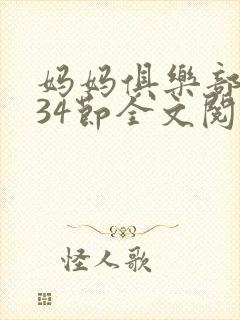 妈妈俱樂部
34节全文阅
怪人歌